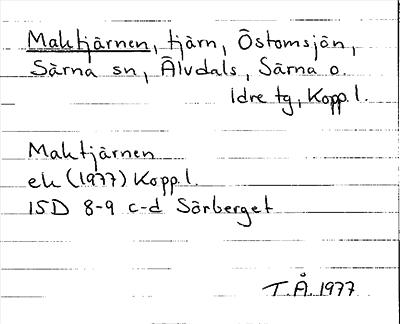 Maktjärnen, tjärn, Östomsjön,
Särna sn, Älvdals, Särna o.
Idre tg, Kopp.l.
Maktjärnen
ek (1977) Kopp.l.
15D 8-9 c-d Sörberget
T.Å. 1977